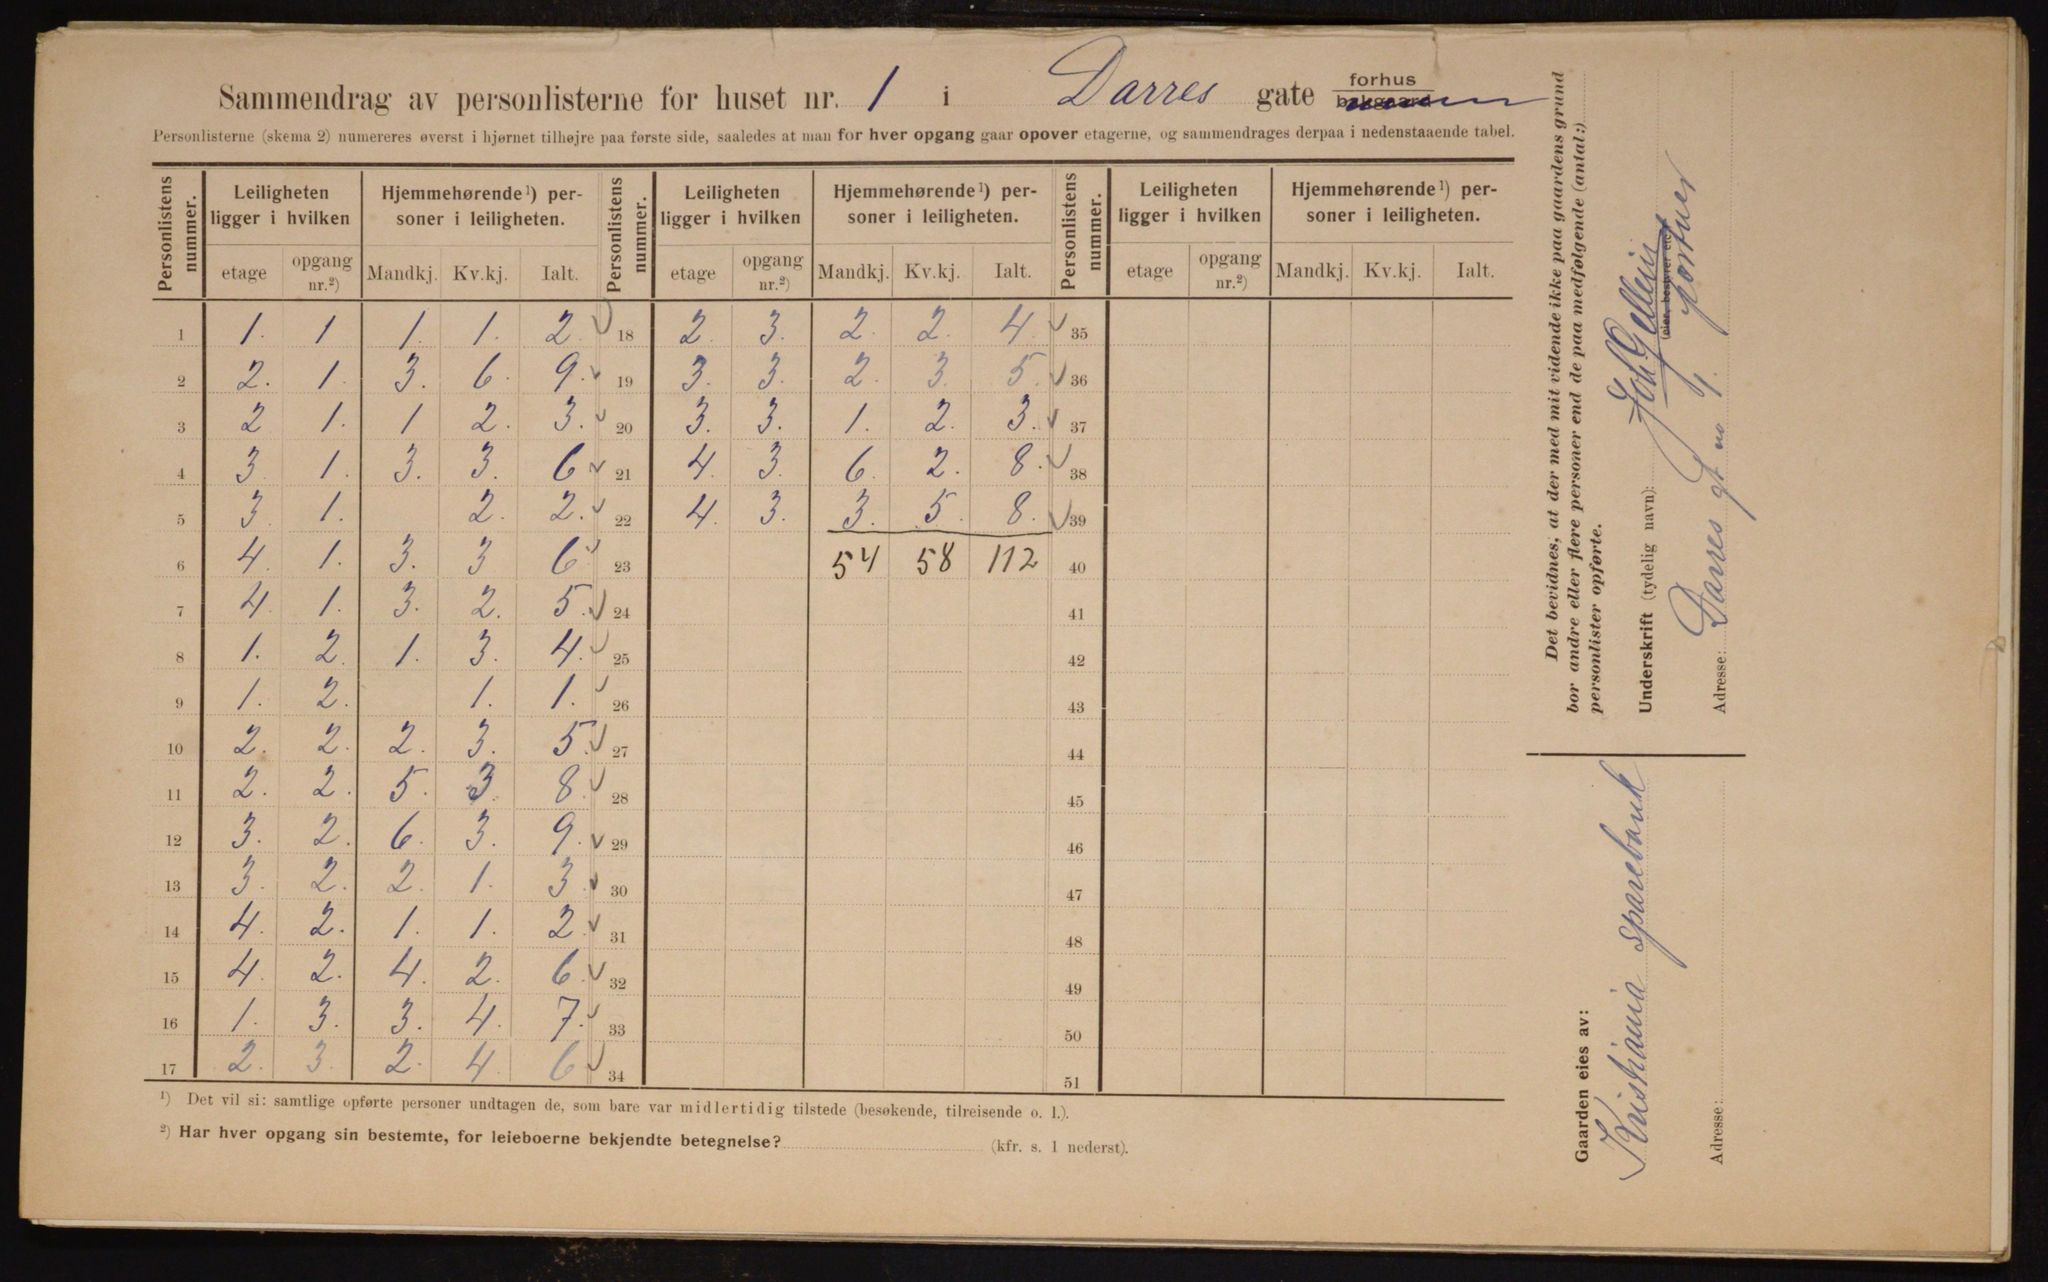 Sammendrag av personlisterne for huset nr. 1 i Darres gate forhus bakgaard
Personlisterne (skema 2) numereres øverst i hjørnet tilhøjre paa første side, saaledes at man for hver opgang gaar opover etagerne, og sammendrages derpaa i nedenstaaende tabel.
Personlistens nummer. Leiligheten ligger i hvilken Hjemmehørende¹) personer i leiligheten. Personlistens nummer. Leiligheten ligger i hvilken Hjemmehørende¹) personer i leiligheten. Personlistens nummer. Leiligheten ligger i hvilken Hjemmehørende¹) personer i leiligheten.
etage opgang nr.²) Mandkj. Kv.kj. Ialt. etage opgang nr.²) Mandkj. Kv.kj. Ialt. etage opgang nr.²) Mandkj. Kv.kj. Ialt.
1 1. 1 1. 1. 2. 18 2. 3. 2. 2. 4 35
2 2. 1. 3. 6. 9. 19 3. 3. 2. 3. 5. 36
3 2 1. 1 2. 3. 20 3. 3. 1. 2. 3. 37
4 3. 1. 3. 3. 6 21 4. 3. 6. 2. 8. 38
5 3. 1. 2. 2. 22 4. 3. 3. 5. 8. 39
6 4. 1. 3. 3 6 23 54 58 112 40
7 4. 1. 3. 2. 5. 24 41
8 1. 2. 1. 3. 4. 25 42
9 1. 2. 1. 1. 26 43
10 2. 2. 2. 3. 5. 27 44
11 2. 2. 5. 3 8. 28 45
12 3. 2. 6. 3. 9. 29 46
13 3. 2. 2. 1. 3. 30 47
14 4. 2. 1. 1. 2. 31 48
15 4. 2. 4. 2. 6. 32 49
16 1. 3. 3. 4. 7. 33 50
17 2. 3. 2. 4. 6 34 51
¹) Det vil si: samtlige opførte personer undtagen de, som bare var midlertidig tilstede (besøkende, tilreisende o. l.).
²) Har hver opgang sin bestemte, for leieboerne bekjendte betegnelse? (kfr. s. 1 nederst).
Det bevidnes, at der med mit vidende ikke paa gaardens grund
bor andre eller flere personer end de paa medfølgende (antal:)
personlister opførte.
Underskrift (tydelig navn): Joh Gellein
(eier, bestyrer eier)
portner
Adresse: Darres gt no 1.
Gaarden eies av:
Kristiania sparebank
Adresse: